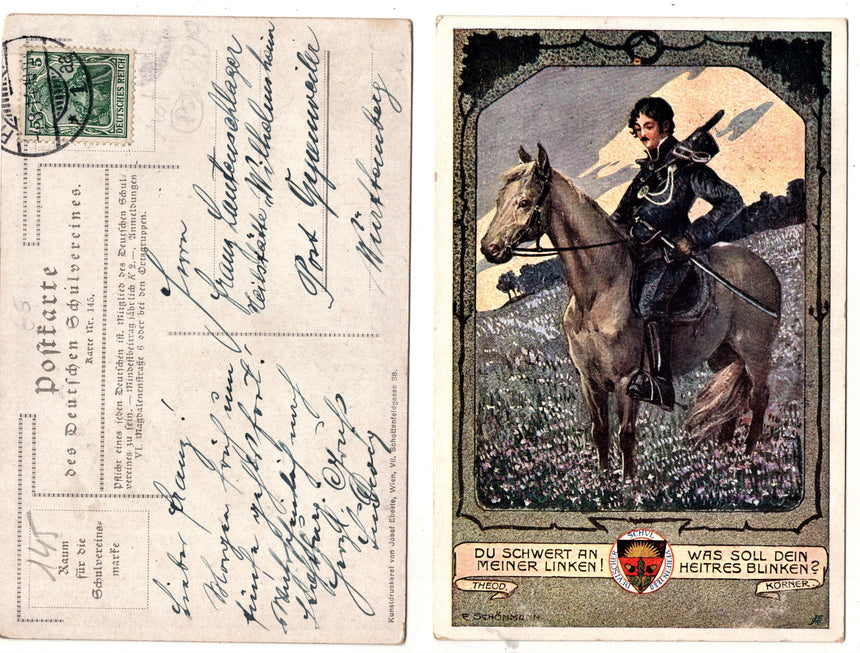 DEUTSCHES REICH
5
5
Postkarte
des Deutschen Schulvereines.
Karte Nr. 145.
Pflicht eines jeden Deutschen ist, Mitglied des Deutschen Schul-
vereines zu sein. — Mindestbeitrag jährlich K 2.—. Anmeldungen
VI. Magdalenenstraße 6 oder bei den Ortsgruppen.
145
Raum
für die
Schulvereins-
marke
Herrn
Franz Lautenschlager
Heilstätte Wilhelmsheim
Post Oppenweiler
Württemberg
Lieber Franz!
Morgen früh um
fünfe gehts fort.
Salzburg.
Gruß
Ludwig
Kunstdruckerei von Josef Eberle, Wien, VII. Schottenfeldgasse 38.
DU SCHWERT AN
MEINER LINKEN!
WAS SOLL DEIN
HEITRES BLINKEN?
THEOD.
KÖRNER.
DEUTSCHER SCHULVEREIN 1880
E. SCHÖNMANN